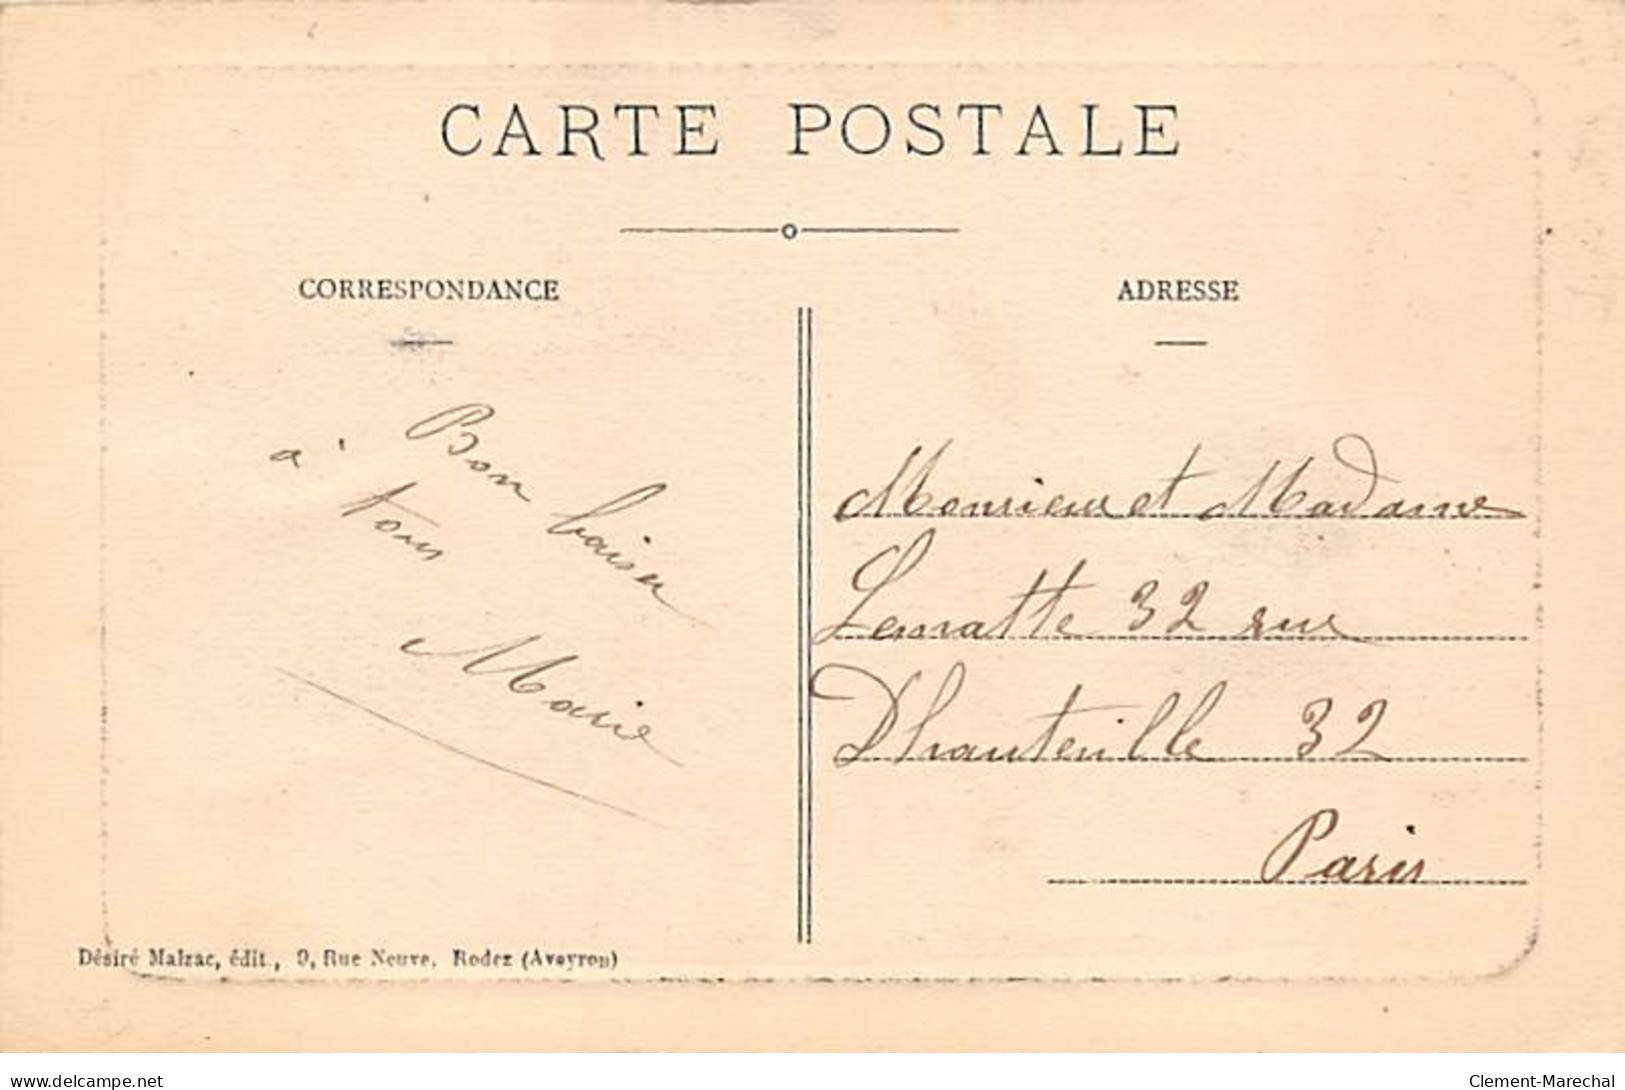 CARTE POSTALE
CORRESPONDANCE
Bon baiser
à tous
Marie
ADRESSE
Monsieur et Madame
Lematte 32 rue
D'hauteville 32
Paris
Désiré Malzac, édit., 9, Rue Neuve. Rodez (Aveyron)
www.delcampe.net
Clement-Marechal